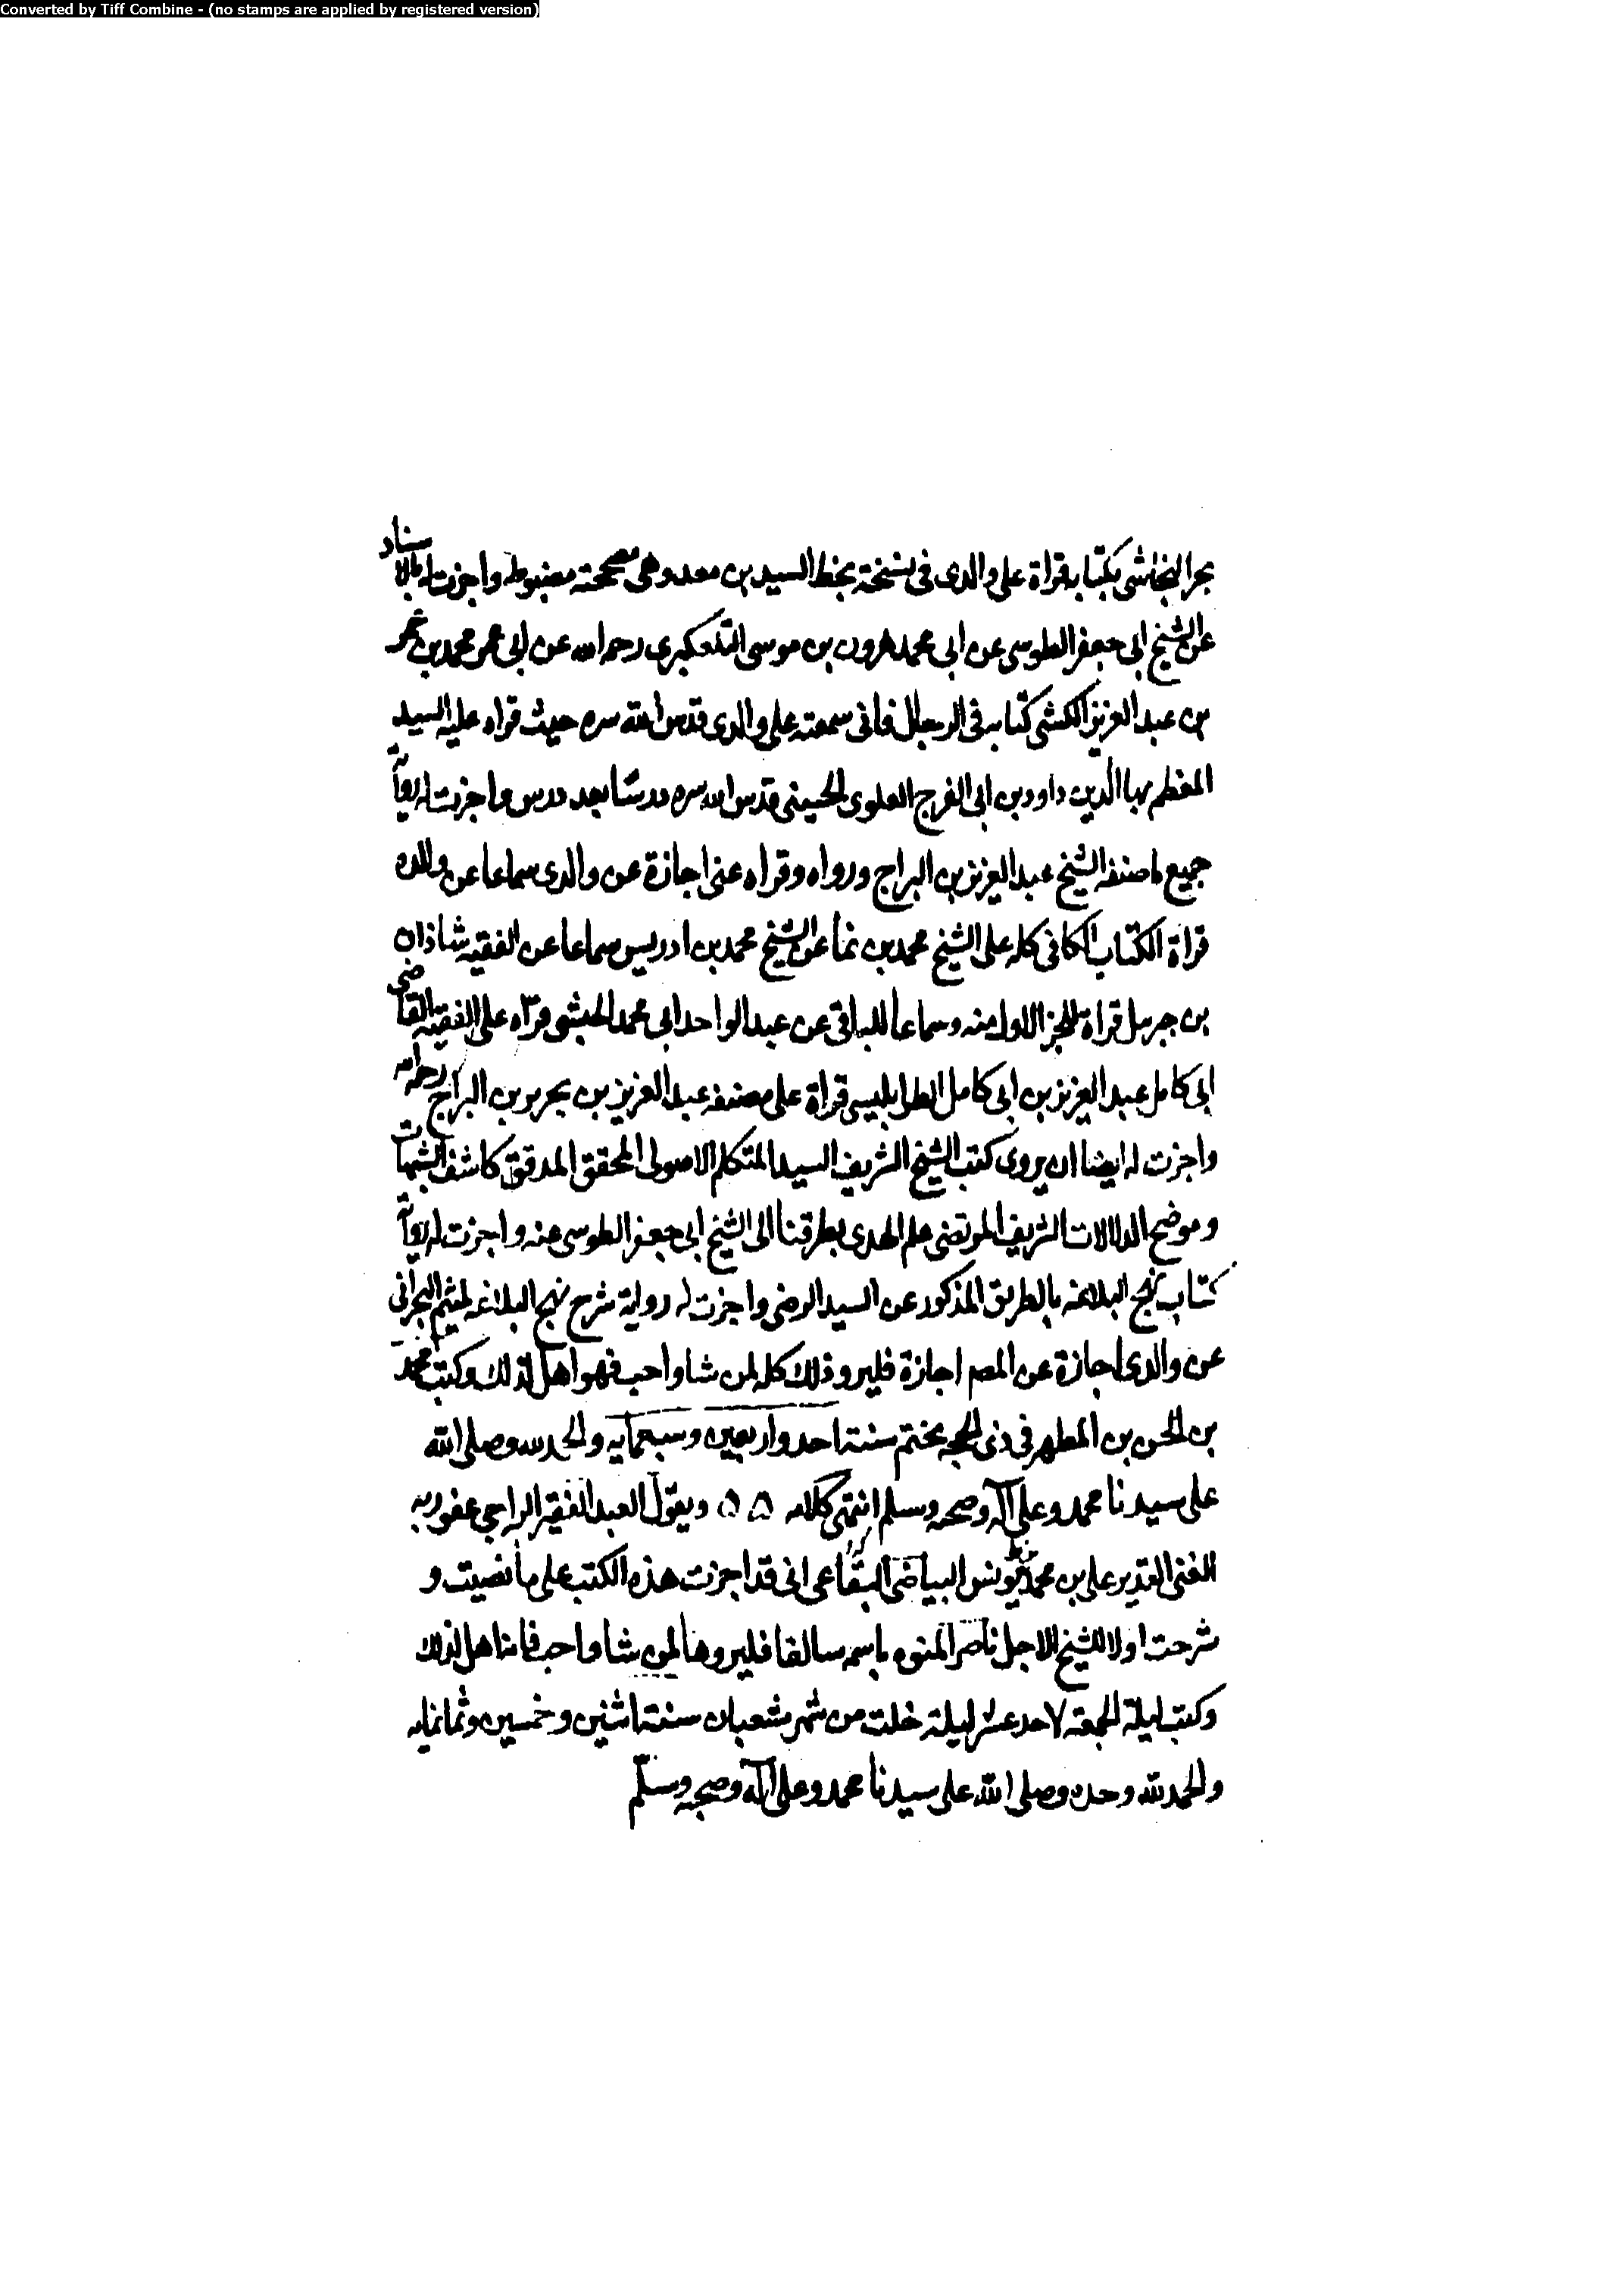 Converted by Tiff Combine - (no stamps are applied by registered version)
النجاشى بكتابه قراة على والدى فى نسخة بخط السيد بن معد وهى صحيحة مضبوطه واجزت له بالاسناد
عن الشيخ ابى جعفر الطوسى عن ابى محمد هرون بن موسى التلعكبرى رحمه الله عن ابى عمر محمد بن عمر
بن عبد العزيز الكشى كتابه فى الرجال فانى سمعته على والدى قدس الله سره حيث قراه عليه السيد
المعظم بها الدين داود بن ابى الفرج العلوى الحسينى قدس الله سره درسا بعد درس واجزت له رواية
جميع ما صنفه الشيخ عبد العزيز بن البراج ورواه وقراه عنى اجازة عن والدى سماعا عن والده
قراة الكتاب الكافى كله على الشيخ محمد بن نما عن الشيخ محمد بن ادريس سماعا عن الفقيه شاذان
بن جبرئيل قراة للجز الاول منه وسماعا للباقى عن عبد الواحد ابى محمد الحبشى قراه على الفقيه القاضى
ابى كامل عبد العزيز بن ابى كامل الطرابلسى قراة على مصنفه عبد العزيز بن نحرير بن البراج رحمه الله
واجزت له ايضا ان يروى كتب الشيخ الشريف السيد المتكلم الاصولى المحقق المدقق كاشف الشبهات
وموضح الدلالات الشريف المرتضى علم الهدى بطرقنا الى الشيخ ابى جعفر الطوسى عنه واجزت له رواية
كتاب نهج البلاغه بالطريق المذكور عن السيد الرضى واجزت له رواية شرح نهج البلاغه لميثم البحرانى
عن والدى اجازة عن المصم اجازة فليرو ذلك كله لمن شا واحب فهو اهل لذلك وكتب محمد
بن الحسن بن المطهر فى ذى الحجه مختتم سنة احد واربعين وسبعمايه والحمد لله وصلى الله
على سيدنا محمد وعلى آله وصحبه وسلم انتهى كلامه ۵ ۵ ويقول العبد الفقير الراجى عفو ربه
الغنى القدير على بن محمد بن يونس البياضى البقاعى انى قد اجزت هذه الكتب على ما نصيت و
شرحت اولا للشيخ الاجل ناصر المنوه باسمه سالفا فليروها لمن شا واحب فانه اهل لذلك
وكتب ليلة الجمعة لاحد عشر ليلة خلت من شهر شعبان سنة اثنين وخمسين وثمانمايه
والحمد لله وحده وصلى الله على سيدنا محمد وعلى آله وصحبه وسلم